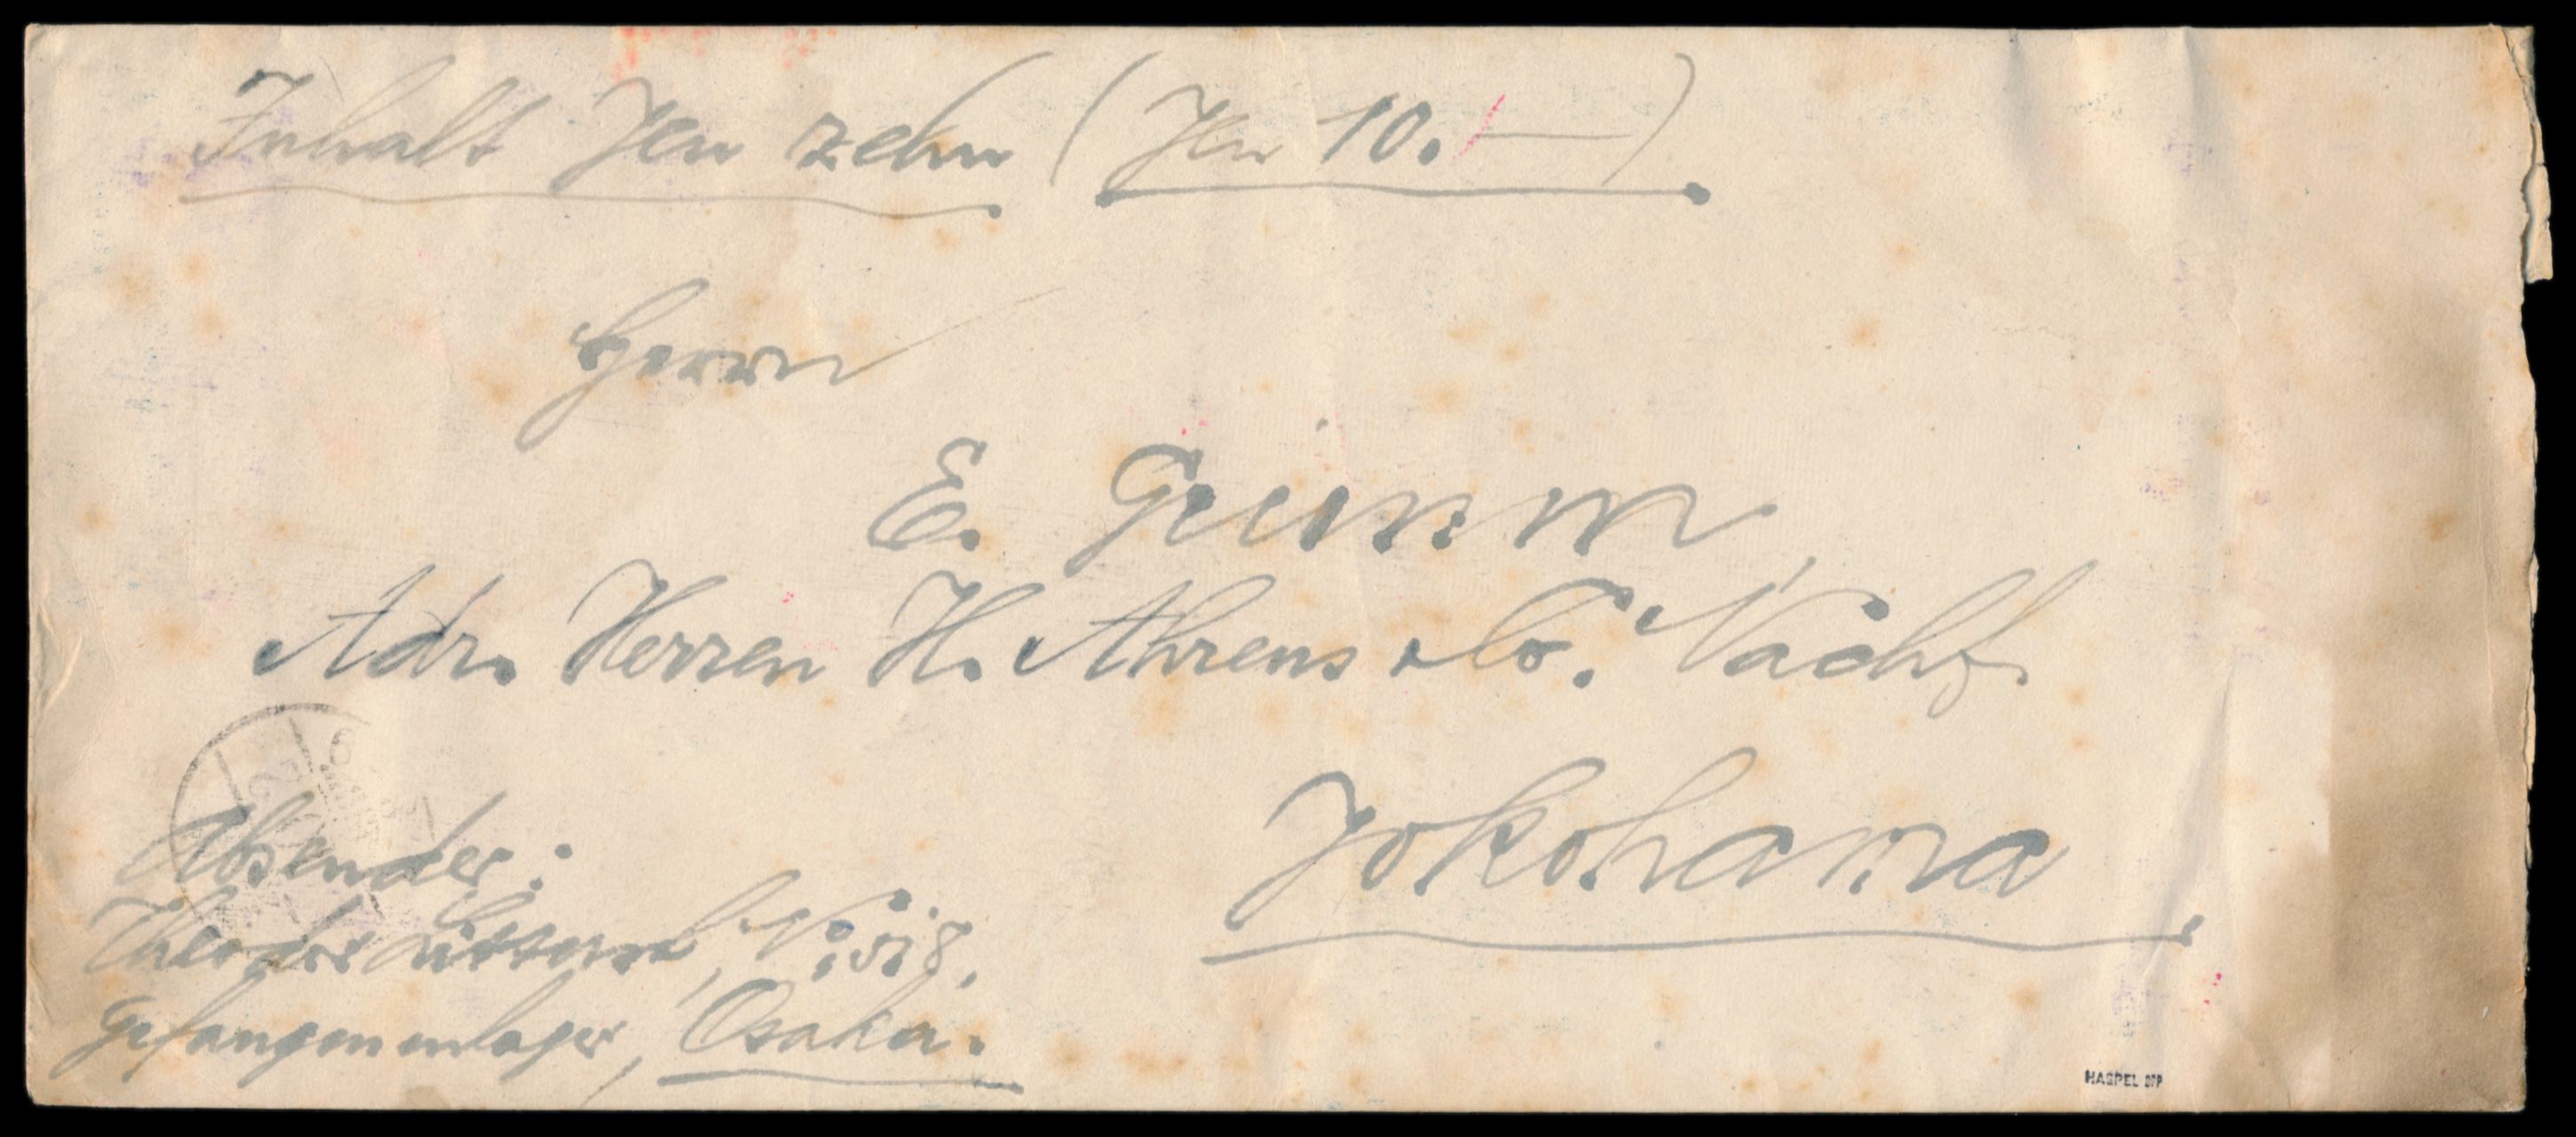 Inhalt Yen zehn (Yen 10.—)
Herrn
E. Grimm
Adr. Herren H. Ahrens & Co. Nachf.
Yokohama
Absender:
Theodor N:
Gefangenenlager, Osaka.
HASPEL BPP